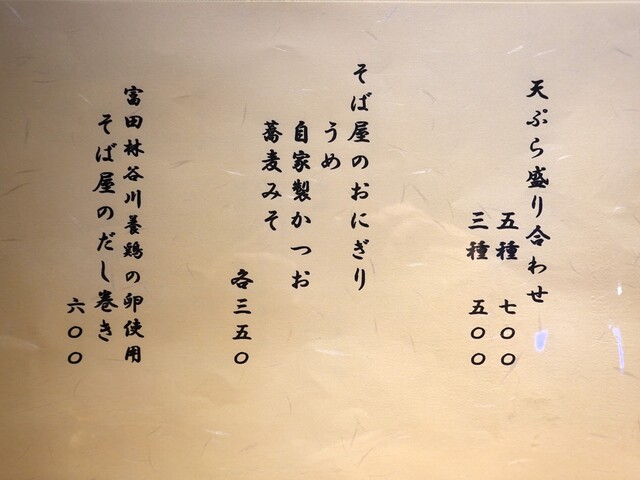 天ぷら盛り合わせ
五種 七〇〇
三種 五〇〇
そば屋のおにぎり
うめ
自家製かつお
蕎麦みそ
各三五〇
富田林谷川養鶏の卵使用
そば屋のだし巻き
六〇〇